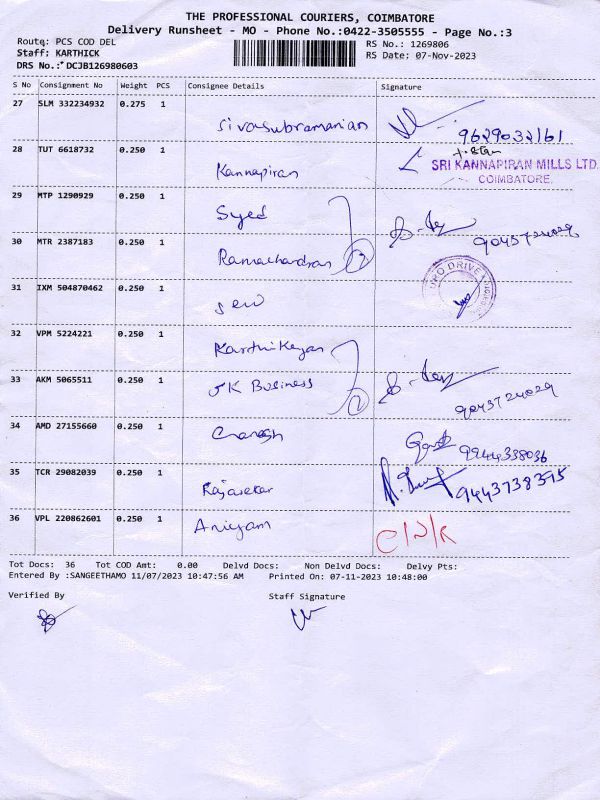 THE PROFESSIONAL COURIERS, COIMBATORE
Delivery Runsheet - MO - Phone No.:0422-3505555 - Page No.:3
Route: PCS COD DEL
RS No.: 1269806
Staff: KARTHICK
RS Date: 07-Nov-2023
DRS No.: DCJB126980603
S No Consignment No Weight PCS Consignee Details Signature
27 SLM 332234932 0.275 1 Sivasubramanian 9629032161
28 TUT 6618732 0.250 1 Kannapiran
SRI KANNAPIRAN MILLS LTD.
COIMBATORE.
29 MTP 1290929 0.250 1 Syed
30 MTR 2387183 0.250 1 Ramachandran 2
31 IXM 504870462 0.250 1
PRO DRIVE
32 VPM 5224221 0.250 1 Karthikeyan
33 AKM 5065511 0.250 1 JK Business 2
34 AMD 27155660 0.250 1 Ganesh 9944338036
35 TCR 29082039 0.250 1 Rajasekar 9443738395
36 VPL 220862601 0.250 1 Aniyam
Tot Docs: 36 Tot COD Amt: 0.00 Delvd Docs: Non Delvd Docs: Delvy Pts:
Entered By :SANGEETHAMO 11/07/2023 10:47:56 AM Printed On: 07-11-2023 10:48:00
Verified By Staff Signature